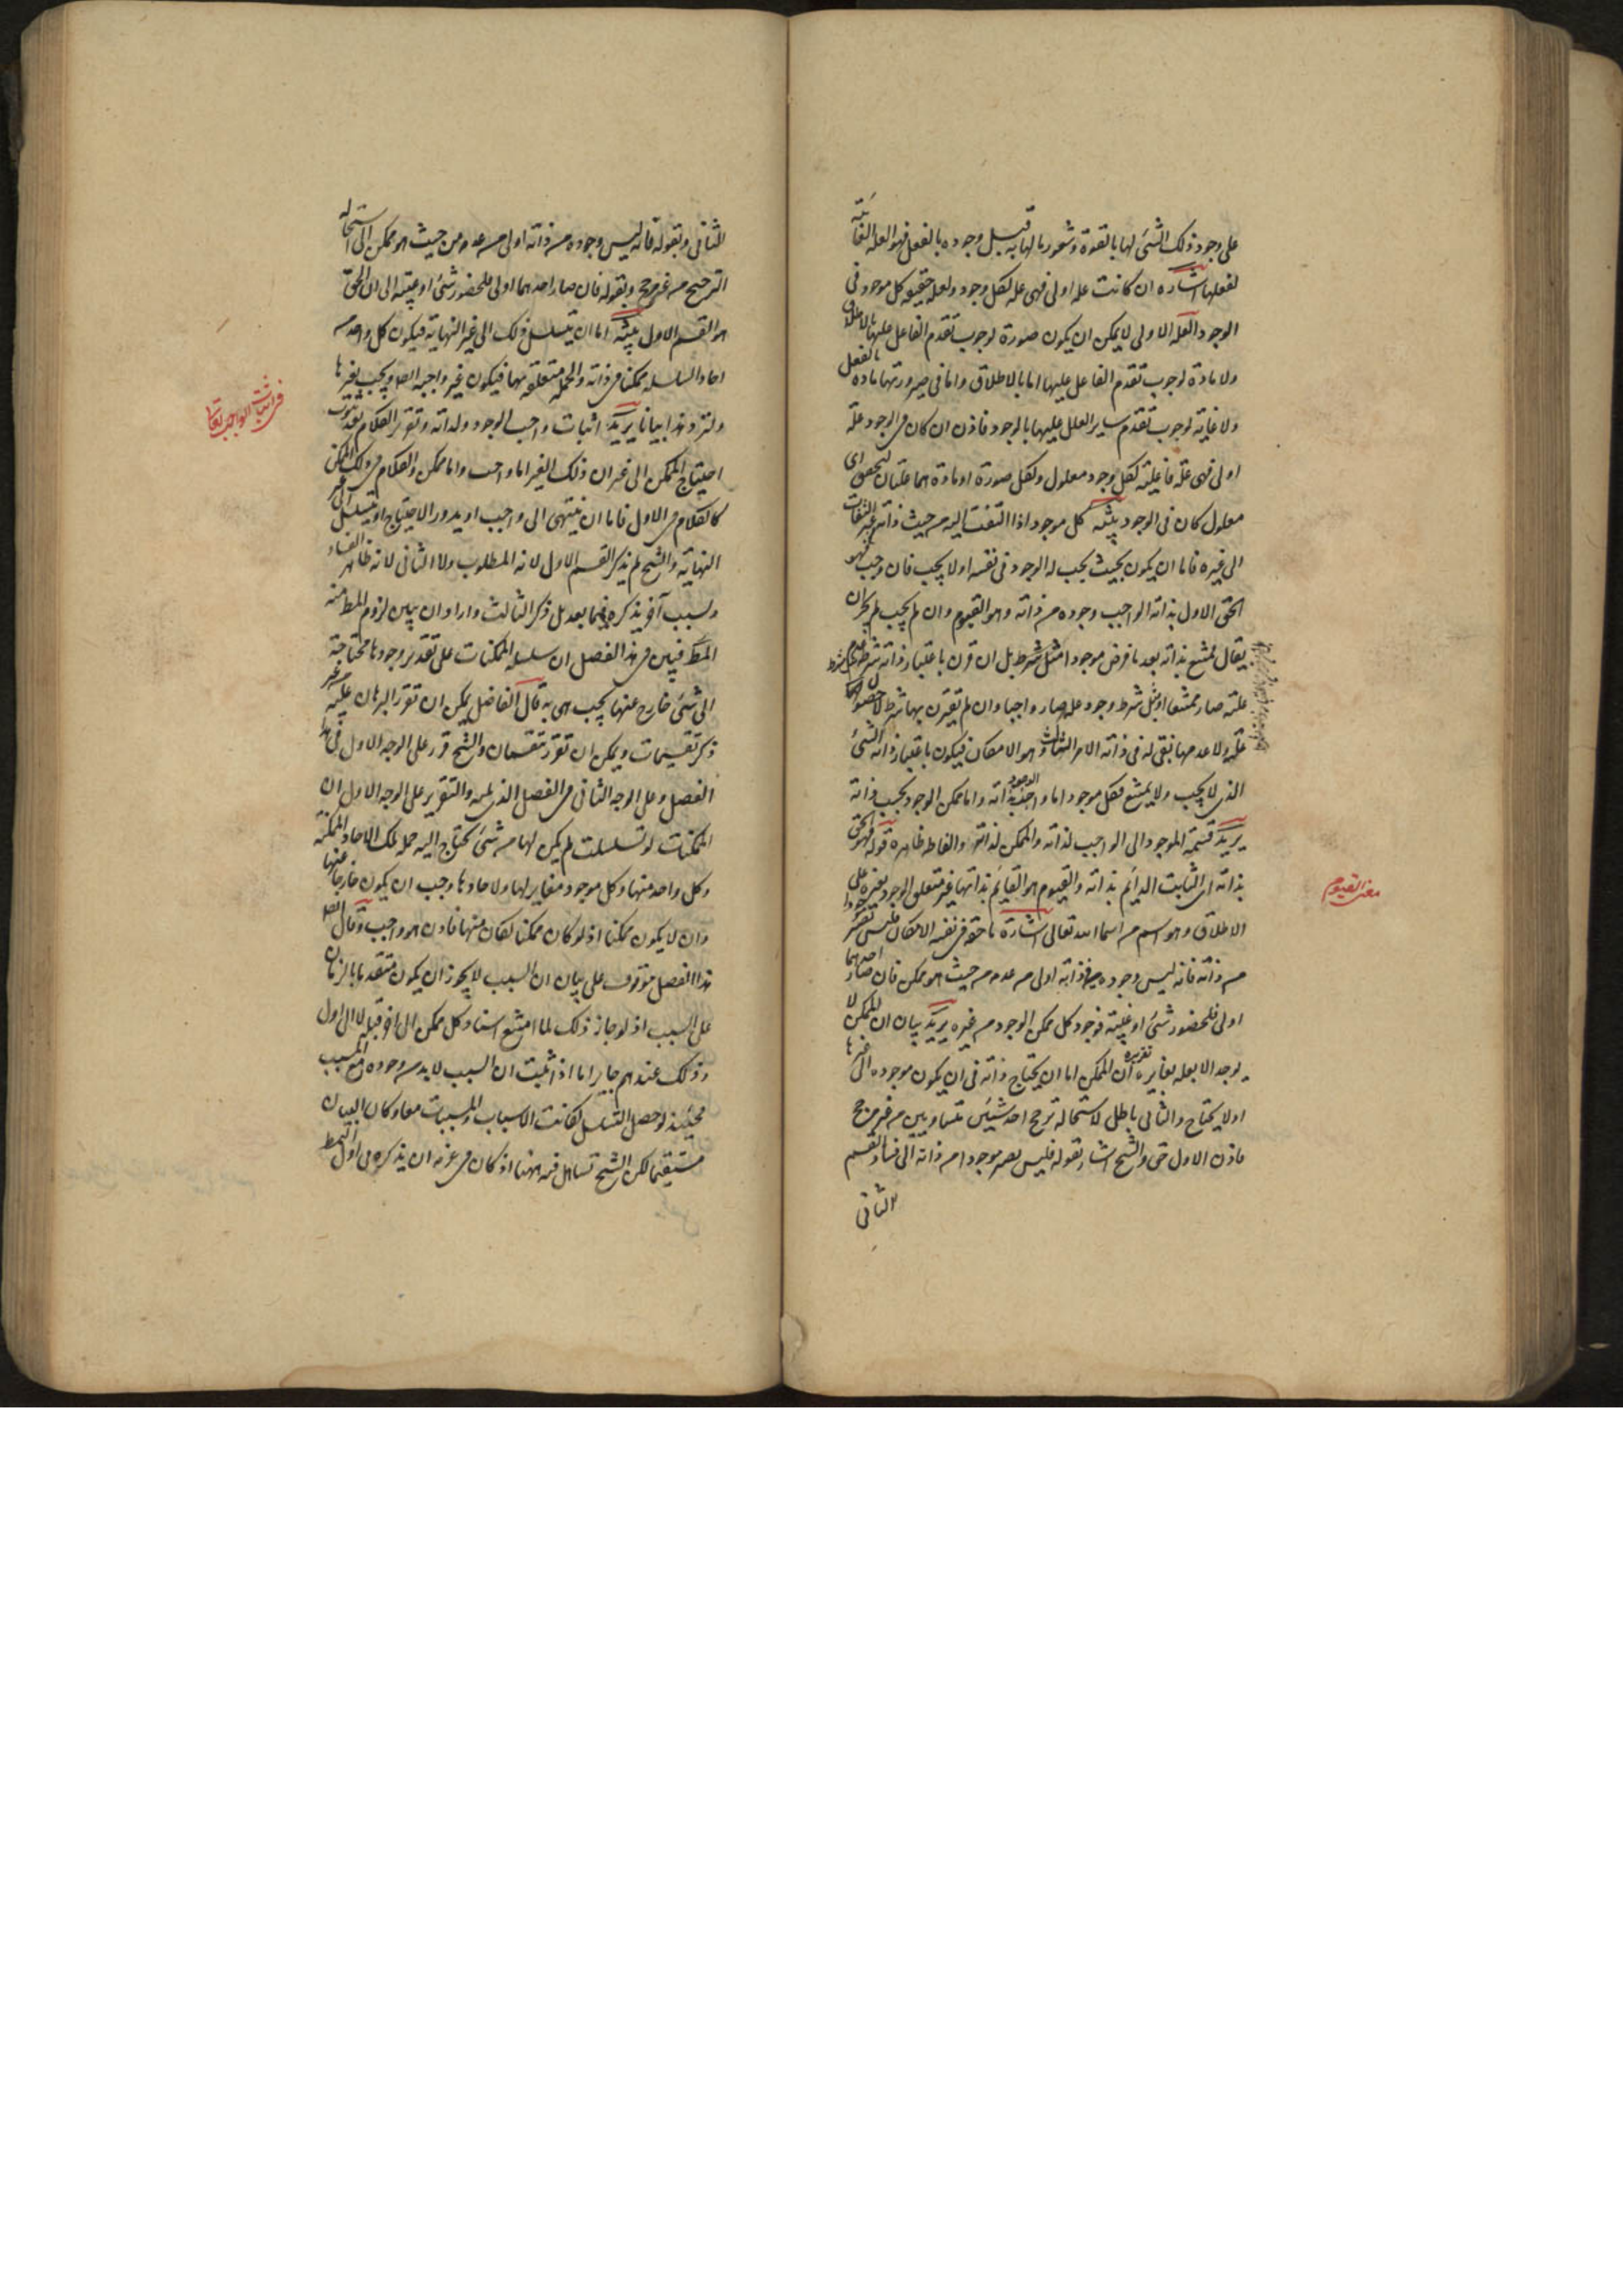 على وجود ذلك الشئ لها بالقوة وشعور بالها به قبل وجوده بالفعل فهو العلة الغائية
لفعلها اشارة ان كانت علة اولى فهى علة لكل وجود ولعلة حقيقة كل موجود فى
الوجود العلة الاولى لا يمكن ان يكون صورة لوجوب تقدم الفاعل عليها بالاطلاق
ولا مادة لوجوب تقدم الفاعل عليها اما بالاطلاق واما فى صيرورتها مادة بالفعل
ولا غاية لوجوب تقدم ساير العلل عليها بالوجود فاذن ان كان فى الوجود علة
اولى فهى علة فاعلية لكل وجود معلول ولكل صورة او مادة هما علتان لتحقق اى
معلول كان فى الوجود تنبيه كل موجود اذا التفت اليه من حيث ذاته من غير التفات
الى غيره فاما ان يكون بحيث يجب له الوجود فى نفسه او لا يجب فان وجب فهو
الحق الاول بذاته الواجب وجوده من ذاته وهو القيوم وان لم يجب لم يجز ان
يقال ممتنع بذاته بعد ما فرض موجودا مثل شرط بل ان قرن باعتبار ذاته شرط مثل شرط عدم
علته صار ممتنعا او مثل شرط وجود علته صار واجبا وان لم يقترن بها شرط لا حصول
علة ولا عدمها بقى له فى ذاته الامر الثالث وهو الامكان فيكون باعتبار ذاته الشئ
الذى لا يجب ولا يمتنع فكل موجود اما واجب الوجود بذاته واما ممكن الوجود بحسب ذاته
يريد قسمة الموجود الى الواجب لذاته والممكن لذاته والفاظه ظاهرة قوله فهو الحق
بذاته اى الثابت الدايم بذاته والقيوم هو القائم بذاته غير متعلق الوجود بغيره على
الاطلاق وهو اسم من اسماء الله تعالى اشارة ما حقه فى نفسه الامكان فليس
من ذاته فانه ليس وجوده من ذاته اولى من عدمه من حيث هو ممكن فان صار احدهما
اولى فلحضور شئ او غيبته فوجود كل ممكن الوجود من غيره يريد بيان ان الممكن لا
يوجد الا بعلة تغايره تقريره ان الممكن اما ان يحتاج ذاته فى ان يكون موجودة الى غيرها
او لا يحتاج والثانى باطل لاستحالة ترجح احد شيئين متساويين من غير مرجح
فاذن الاول حق والشيخ اشار بقوله فليس يصير موجودا من ذاته الى فساد القسم
الثانى
معنى القيوم
الثانى وبقوله فانه ليس وجوده من ذاته اولى من عدمه من حيث هو ممكن الى استحالة
الترجيح من غير مرجح وبقوله فان صار احدهما اولى فلحضور شئ او غيبته الى ان الحق
هو القسم الاول تنبيه اما ان يتسلسل ذلك الى غير النهاية فيكون كل واحد من
احاد السلسلة ممكنا فى ذاته والجملة متعلقة بها فيكون غير واجبة ايضا ويجب بغيرها
ولنزد هذا بيانا يريد اثبات واجب الوجود ولذاته وتقرير الكلام بعد ثبوت
احتياج الممكن الى غيره ان ذلك الغير اما واجب واما ممكن والكلام فى ذلك الممكن
كالكلام فى الاول فاما ان ينتهى الى واجب او يدور الاحتياج او يتسلسل الى غير
النهاية والشيخ لم يذكر القسم الاول لانه المطلوب ولا الثانى لانه ظاهر الفساد
ولسبب آخر يذكره فيما بعد بل ذكر الثالث واراد ان يبين لزوم المط منه
المط فبين فى هذا الفصل ان سلسلة الممكنات على تقدير وجودها محتاجة
الى شئ خارج عنها يجب هى به قال الفاضل يمكن ان تقرر البرهان عليه من غير
ذكر تقسيمات ويمكن ان تقرر بتقسيمات والشيخ قرر على الوجه الاول فى هذا
الفصل وعلى الوجه الثانى فى الفصل الذى يليه والتقرير على الوجه الاول ان
الممكنات لو تسلسلت لم يكن لها من شئ يحتاج اليه جملة تلك الاحاد الممكنة
وكل واحد منها وكل موجود مغاير لها ولاحادها وجب ان يكون خارجا عنها
وان لا يكون ممكنا اذ لو كان ممكنا لكان منها فاذن هو واجب وقال ايضا
هذا الفصل موقوف على بيان ان السبب لا يجوز ان يكون متقدما بالزمان
على المسبب اذ لو جاز ذلك لما امتنع استناد كل ممكن الى اخر قبله لا الى اول
وذلك عندهم جايز اما اذا ثبت ان السبب لا بد من وجوده مع المسبب
فحينئذ لو حصل التسلسل لكانت الاسباب والمسببات معا وكان البيان
مستقيما لكن الشيخ تساهل فيه ههنا اذ كان فى عزمه ان يذكره فى اول النمط
فى اثبات الواجب تعالى